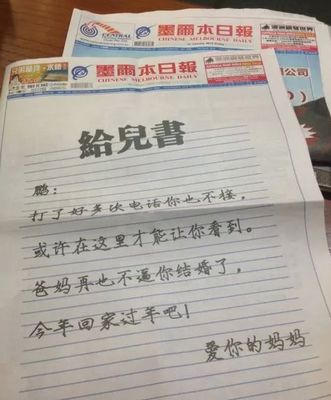 墨爾本日報
CENTRAL
墨爾本日報
CHINESE MELBOURNE DAILY
給兒書
鹏：
打了好多次电话你也不接，
或许在这里才能让你看到。
爸妈再也不逼你结婚了，
今年回家过年吧！
爱你的妈妈